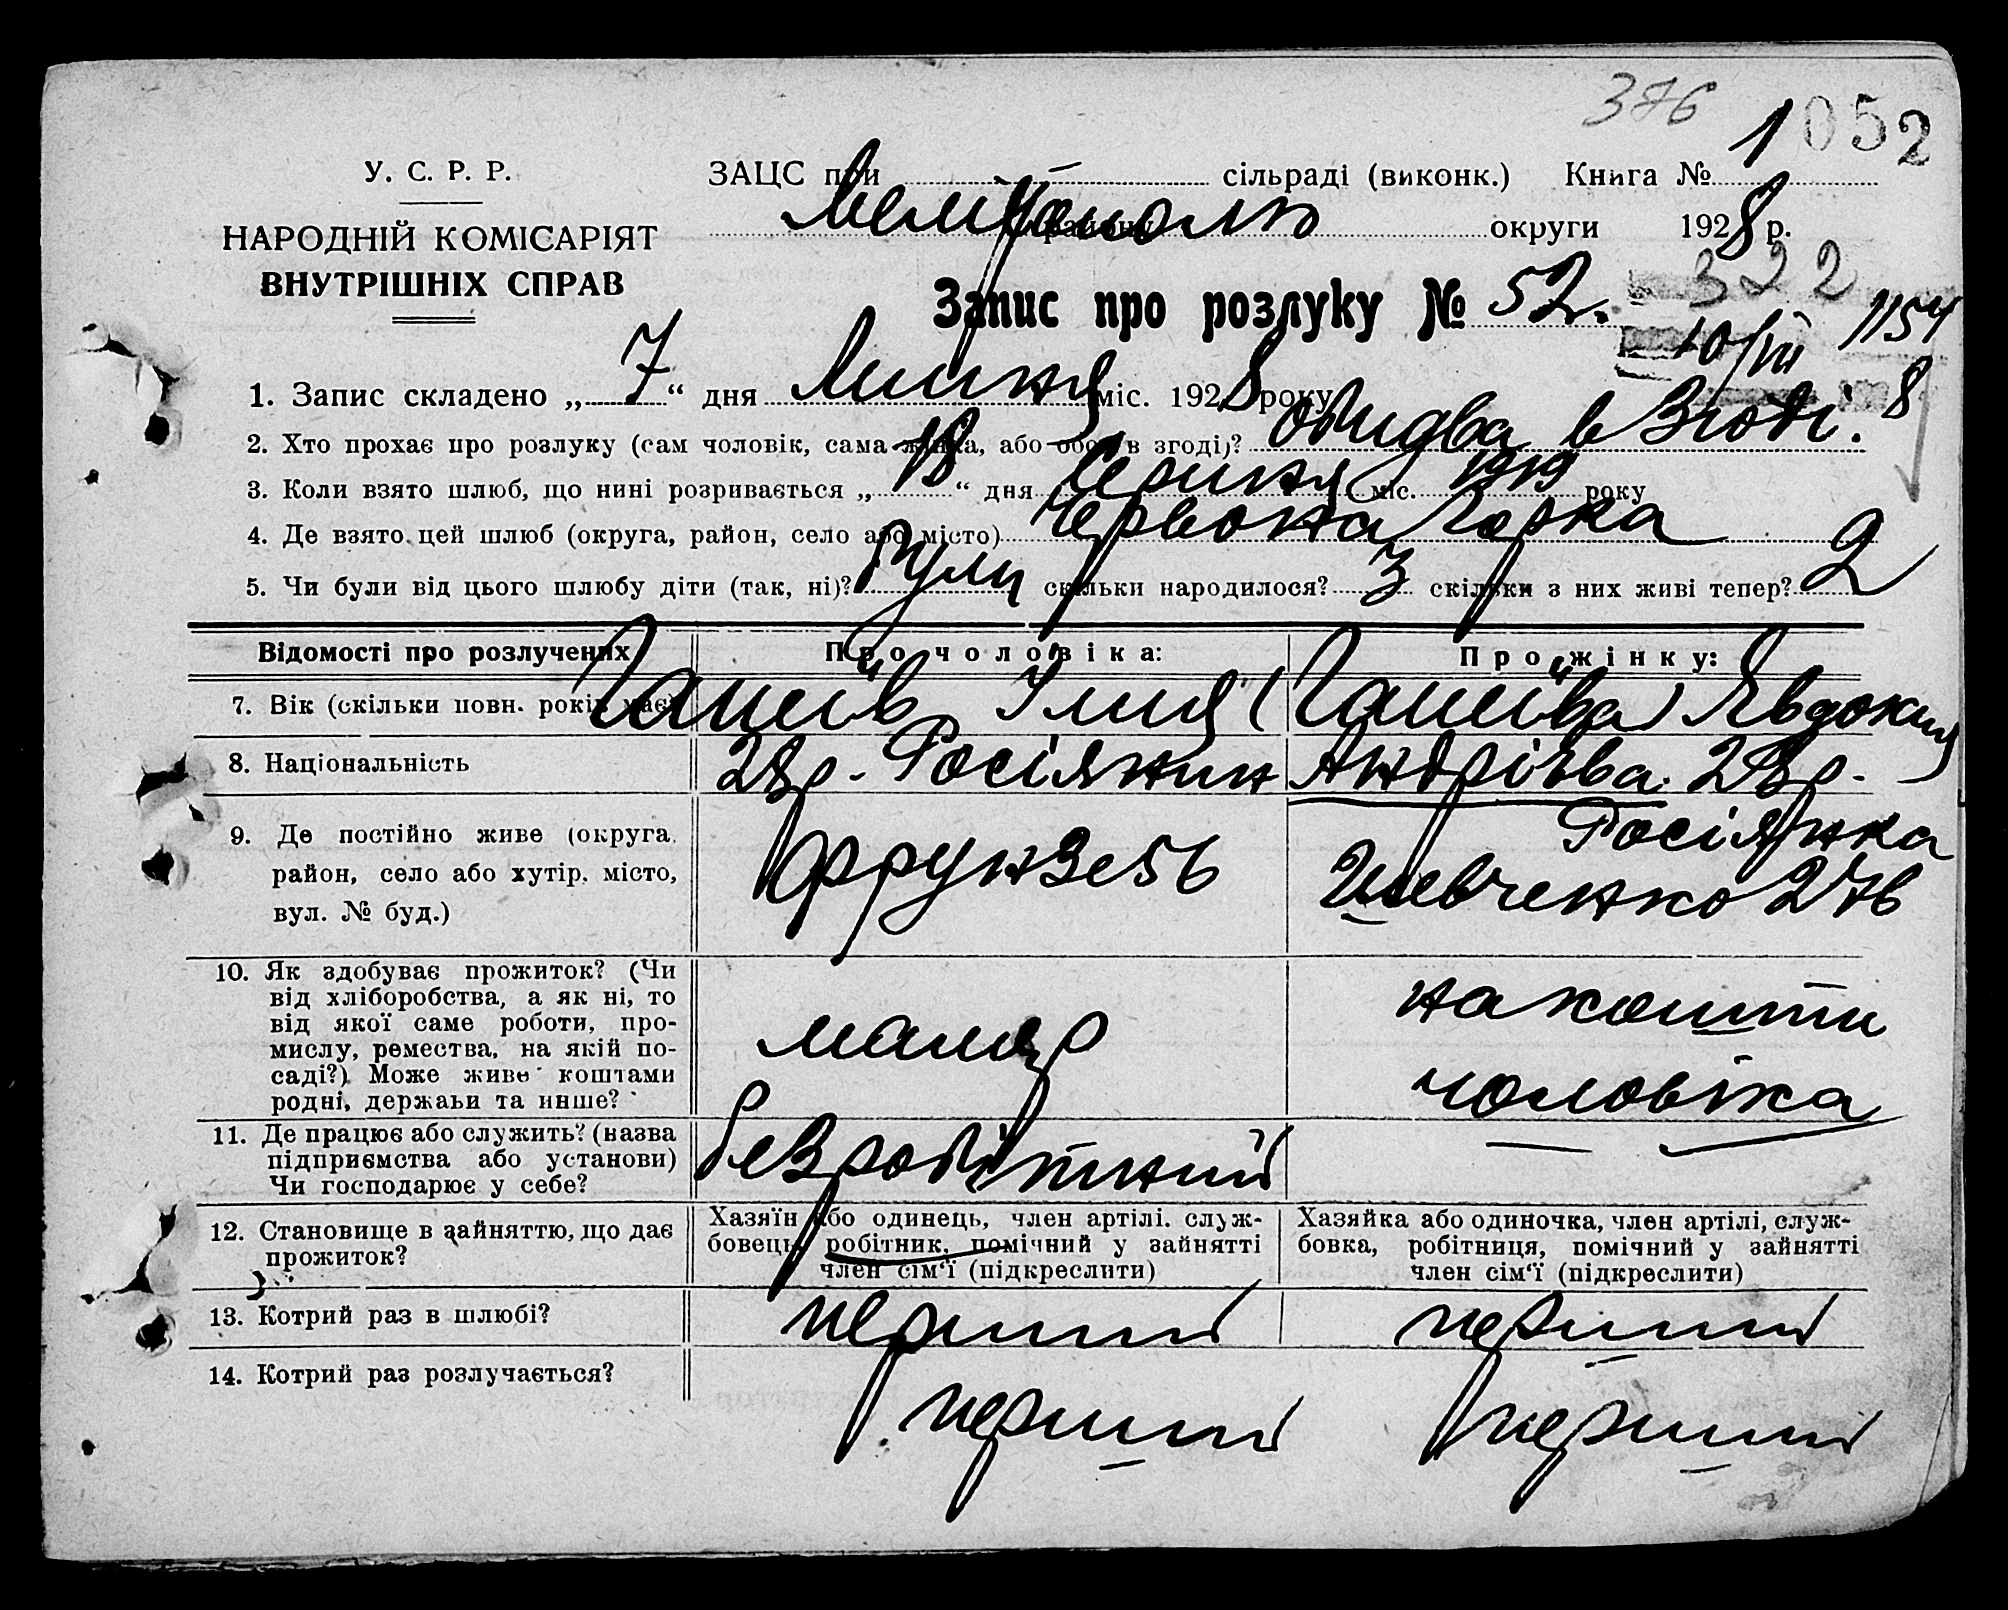 376
1052
У. С. Р. Р.
НАРОДНІЙ КОМІСАРІЯТ
ВНУТРІШНІХ СПРАВ
ЗАЦС при сільраді (виконк.) Книга № 1
Мелітополь району округи 1928 р.
Запис про розлуку № 52.
322
10/VII 1154
8
1. Запис складено „7“ дня Липня міс. 1928 року
2. Хто прохає про розлуку (сам чоловік, сама жінка, або обоє в згоді)? Обидва в Згоді.
3. Коли взято шлюб, що нині розривається „18“ дня Серпня міс. 1919 року
4. Де взято цей шлюб (округа, район, село або місто) Червона Горка
5. Чи були від цього шлюбу діти (так, ні)? Були скільки народилося? 3 скільки з них живі тепер? 2
Відомості про розлучених Про чоловіка: Про жінку:
7. Вік (скільки повн. років має) Ілия Явдокия
8. Національність Росіянин Андрієва 28 р.
Росіянка
9. Де постійно живе (округа, район, село або хутір, місто, вул. № буд.)
Фрунзе 56
Шевченко 276
10. Як здобуває прожиток? (Чи
від хліборобства, а як ні, то
від якої саме роботи, про-
мислу, ремества, на якій по-
саді?) Може живе коштами
родні, держави та инше?
маляр
на кошти
чоловіка
11. Де працює або служить? (назва
підприємства або установи)
Чи господарює у себе?
безробітний
12. Становище в зайняттю, що дає
прожиток?
Хазяїн або одинець, член артілі, служ-
бовець, робітник, помічний у зайнятті
член сім'ї (підкреслити)
Хазяйка або одиночка, член артілі, служ-
бовка, робітниця, помічний у зайнятті
член сім'ї (підкреслити)
13. Котрий раз в шлюбі? перший перший
14. Котрий раз розлучається? перший перший